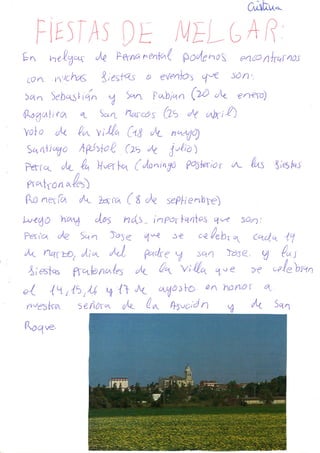 Cristina
FIESTAS DE MELGAR:
En melgar de Fernamental podemos encontrarnos
con muchas fiestas o eventos que son:
San Sebastián y San Fabian (20 de enero)
Rogativa a San Marcos (25 de abril)
Voto de la Villa (18 de mayo)
Santiago Apóstol (25 de julio)
Feria de la Huerta (domingo posterior a las fiestas
pratronales)
Romería de Zorita (8 de septiembre)
Luego hay dos más importantes que son:
Feria de San Jose que se celebra cada 19
de marzo, dia del padre y san Jose. y las
fiestas Pratonales de la Villa que se celebran
el 14, 15, 16 y 17 de agosto en honor a
nuestra señora de la Asución y de San
Roque